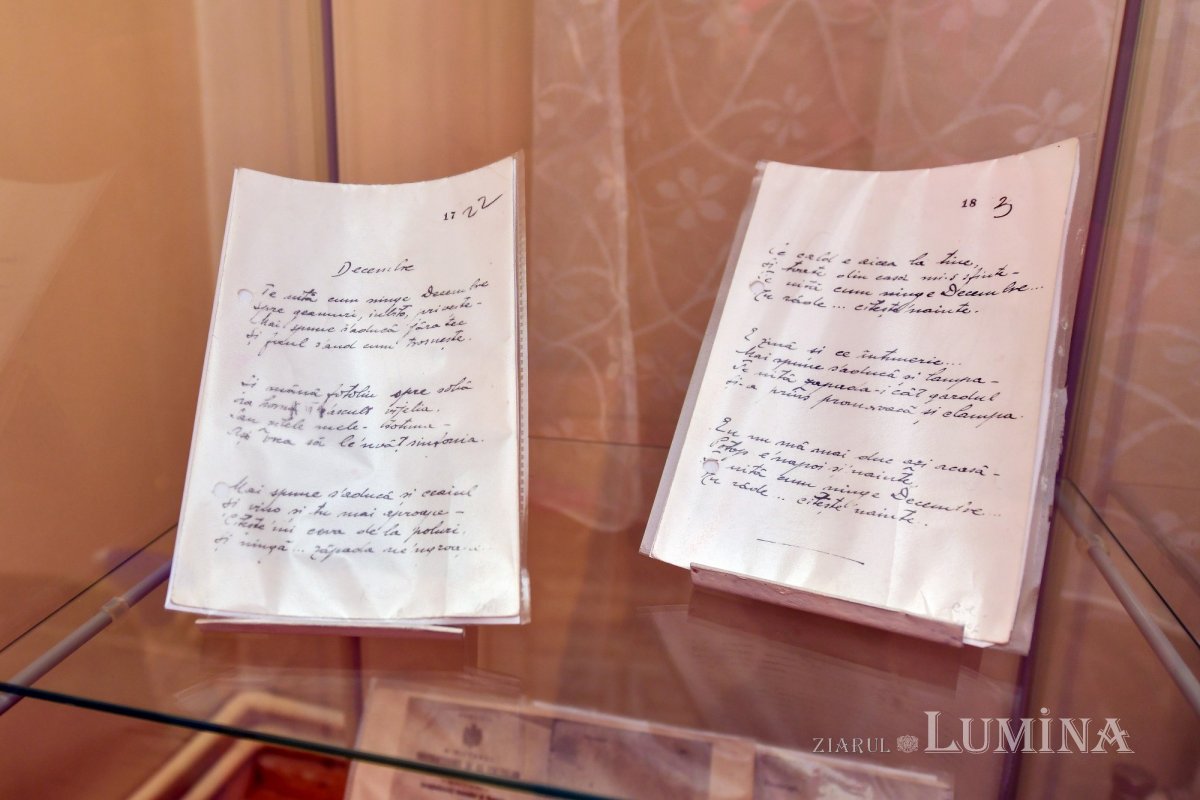 17 22
Decembre
Te uită cum ninge Decembre
Spre geamuri, iubito, privește -
Mai spune s'aducă jăratec
Și focul s'aud cum trosnește.
Și mână fotoliu spre sobă
La horn să ascult vijelia.
Sau zilele mele - totuna -
Aș vrea să le 'nvăț simfonia.
Mai spune s'aducă și ceaiul
Și vino și tu mai aproape -
Citește 'mi ceva de la poluri.
Și ningă... zăpada ne 'ngroape...
18 3
Ce cald e aicea la tine,
Și toate din casă mi-s sfinte -
Te uită cum ninge Decembre...
Nu râde... citește 'nainte.
E ziuă și ce întuneric...
Mai spune s'aducă și lampa -
Te uită zapada-i cât gardul
Și-a prins promoroacă și clampa.
Eu nu mă mai duc azi acasă -
Potop e 'napoi și 'nainte
Te uită cum ninge Decembre...
Nu râde... citește 'nainte.
ZIARUL LUMINA